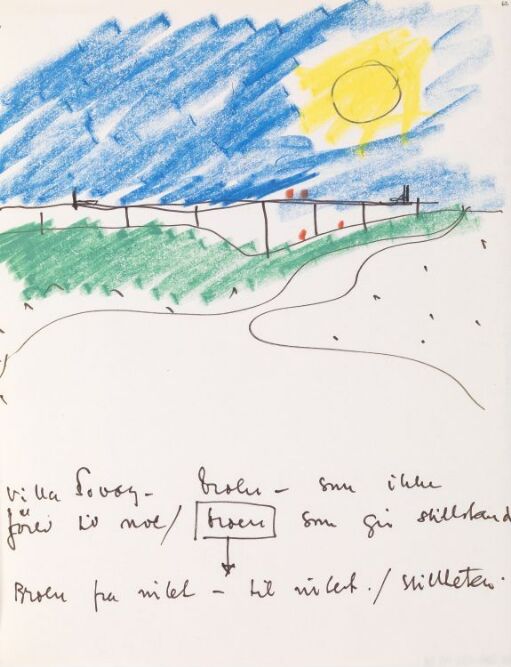 Villa Savoy - broen - som ikke
fører til noe / broen som gir stillstand
Broen fra intet - til intet. / stillheten.